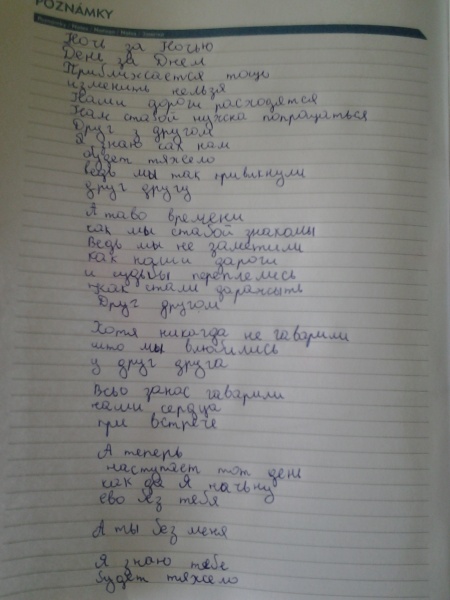 POZNÁMKY
Ноч за Ночью
Ден за Днем
Приближается тощо
изменить нельзя
Наши дороги расходятся
Нам стабой нужна попращаться
Друг з другом
Я знаю как нам
будет тяжело
ведь мы так привыкнули
друг другу
А таво времени
как мы стабой знакомы
Ведь мы не заметили
как наши дароги
и судьбы переплелись
как стали даражыть
Друг другом
Хотя никагда не гаварили
што мы влюбились
у друг друга
Всьо занас гаварили
наши сердца
при встрече
А теперь
наступает тот ден
как да Я начьну
ево Яз тебя
А ты без меня
Я знаю тебе
будет тяжело